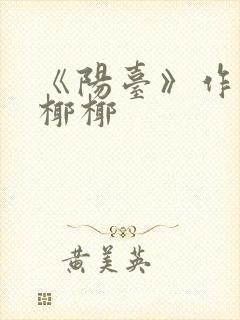 《陽臺》作
椰椰
黄美英